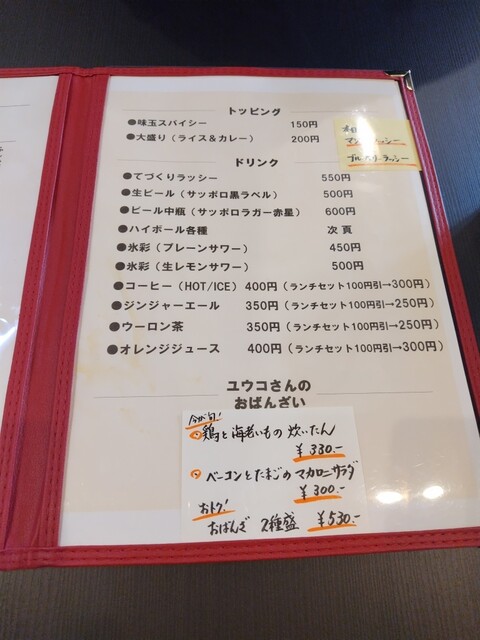 トッピング
●味玉スパイシー 150円
●大盛り（ライス＆カレー） 200円
ドリンク
●てづくりラッシー 550円
●生ビール（サッポロ黒ラベル） 500円
●ビール中瓶（サッポロラガー赤星） 600円
●ハイボール各種 次頁
●氷彩（プレーンサワー） 450円
●氷彩（生レモンサワー） 500円
●コーヒー（HOT/ICE） 400円（ランチセット100円引→300円）
●ジンジャーエール 350円（ランチセット100円引→250円）
●ウーロン茶 350円（ランチセット100円引→250円）
●オレンジジュース 400円（ランチセット100円引→300円）
ユウコさんの
おばんざい
今が旬!
鶏と海老いもの 炊いたん
¥330.-
ベーコンとたまごの マカロニサラダ
¥300.-
おトク!
おばんざい 2種盛 ¥530.-